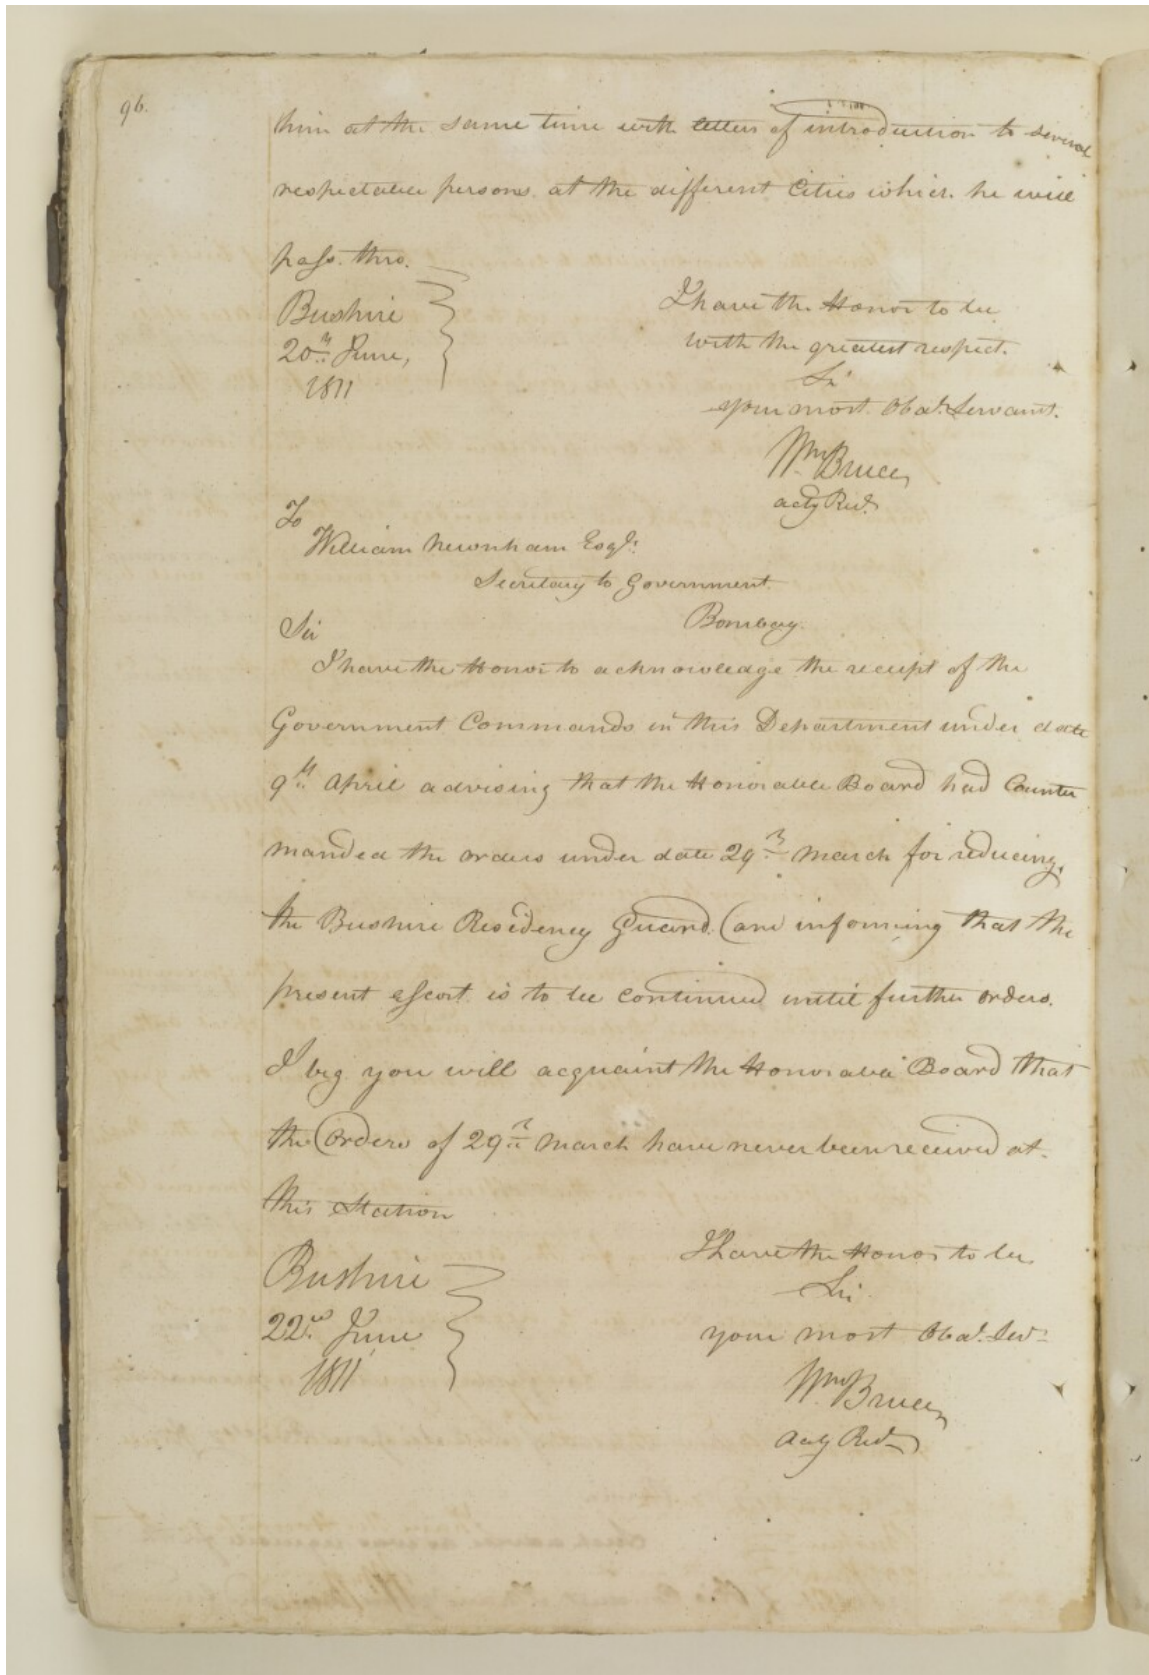 96.
him at the same time with letters of introduction to several
respectable persons at the different Cities which he will
pass thro.
Bushire
20th June,
1811
I have the Honor to be
with the greatest respect.
Sir
your most Obedt. Servant.
Wm. Bruce,
actg Rest.
To
William Newnham Esqr.
Secretary to Government.
Bombay.
Sir
I have the Honor to acknowledge the receipt of the
Government Commands in this Department under date
9th April advising that the Honorable Board had Counter
manded the orders under date 29th March for reducing
the Bushire Residency Guard (and informing that the
present escort is to be continued until further orders.
I beg you will acquaint the Honorable Board that
the Orders of 29th March have never been received at
this Station
Bushire
22nd June
1811
I have the Honor to be
Sir
your most Obedt. Sert.
Wm. Bruce,
Actg Rest